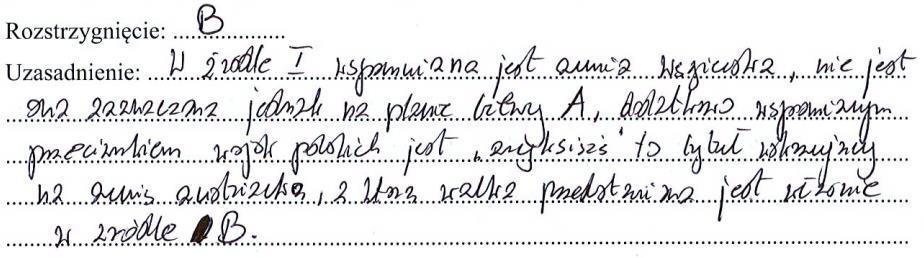 Rozstrzygnięcie: B
Uzasadnienie: W źródle I wspomniana jest armia węgierska, nie jest
ona zaznaczona jednak na planie bitwy A, dodatkowo wspomnianym
przeciwnikiem wojsk polskich jest „arcyksiąże" to tytuł wskazujący
na armię austriacką, z którą walka przedstawiona jest właśnie
w źródle B.